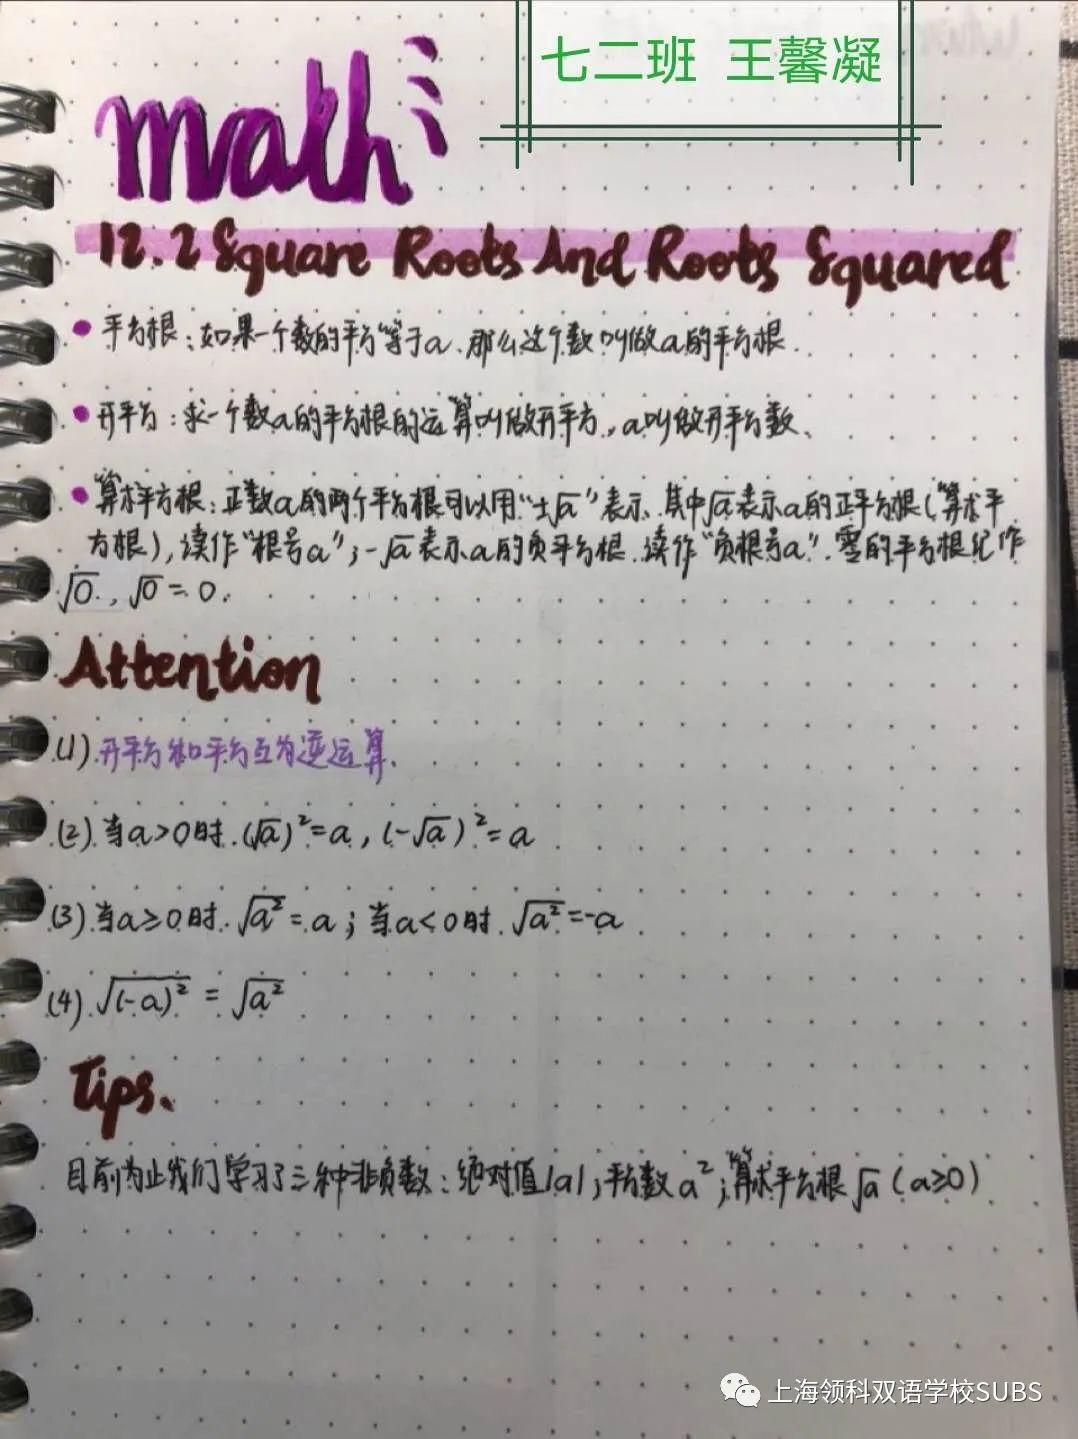 七二班 王馨凝
math
12.2 Square Roots And Roots Squared
平方根:如果一个数的平方等于a.那么这个数叫做a的平方根.
开平方:求一个数a的平方根的运算叫做开平方,a叫做开平方数、
算术平方根:正数a的两个平方根可以用“±√a”表示.其中√a表示a的正平方根(算术平
方根),读作“根号a”;-√a表示a的负平方根.读作“负根号a”.零的平方根纪作
√0,√0=0.
Attention
(1).开平方和平方互为逆运算、
(2).当a>0时.(√a)²=a,(-√a)²=a
(3)当a≥0时.√a²=a;当a<0时.√a²=-a
(4).√(-a)²=√a²
Tips、
目前为止我们学习了三种非负数:绝对值|a|;平方数a²;算术平方根√a(a≥0)
上海领科双语学校SUBS